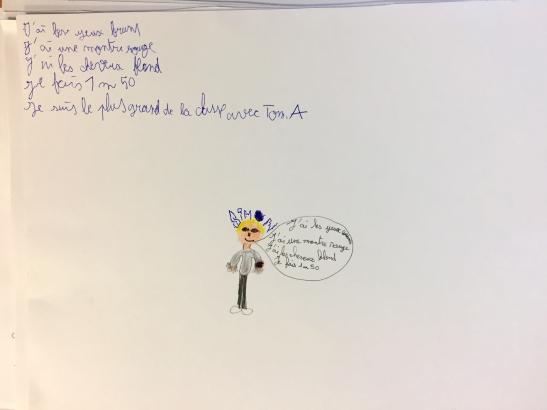 J'ai les yeux bruns
J'ai une montre rouge
J'ai les cheveux blond
je fais 1 m 50
je suis le plus grand de la classe avec Tom.A
J'ai les yeux
J'ai une montre rouge
J'ai les cheveux blond
je fais 1m 50